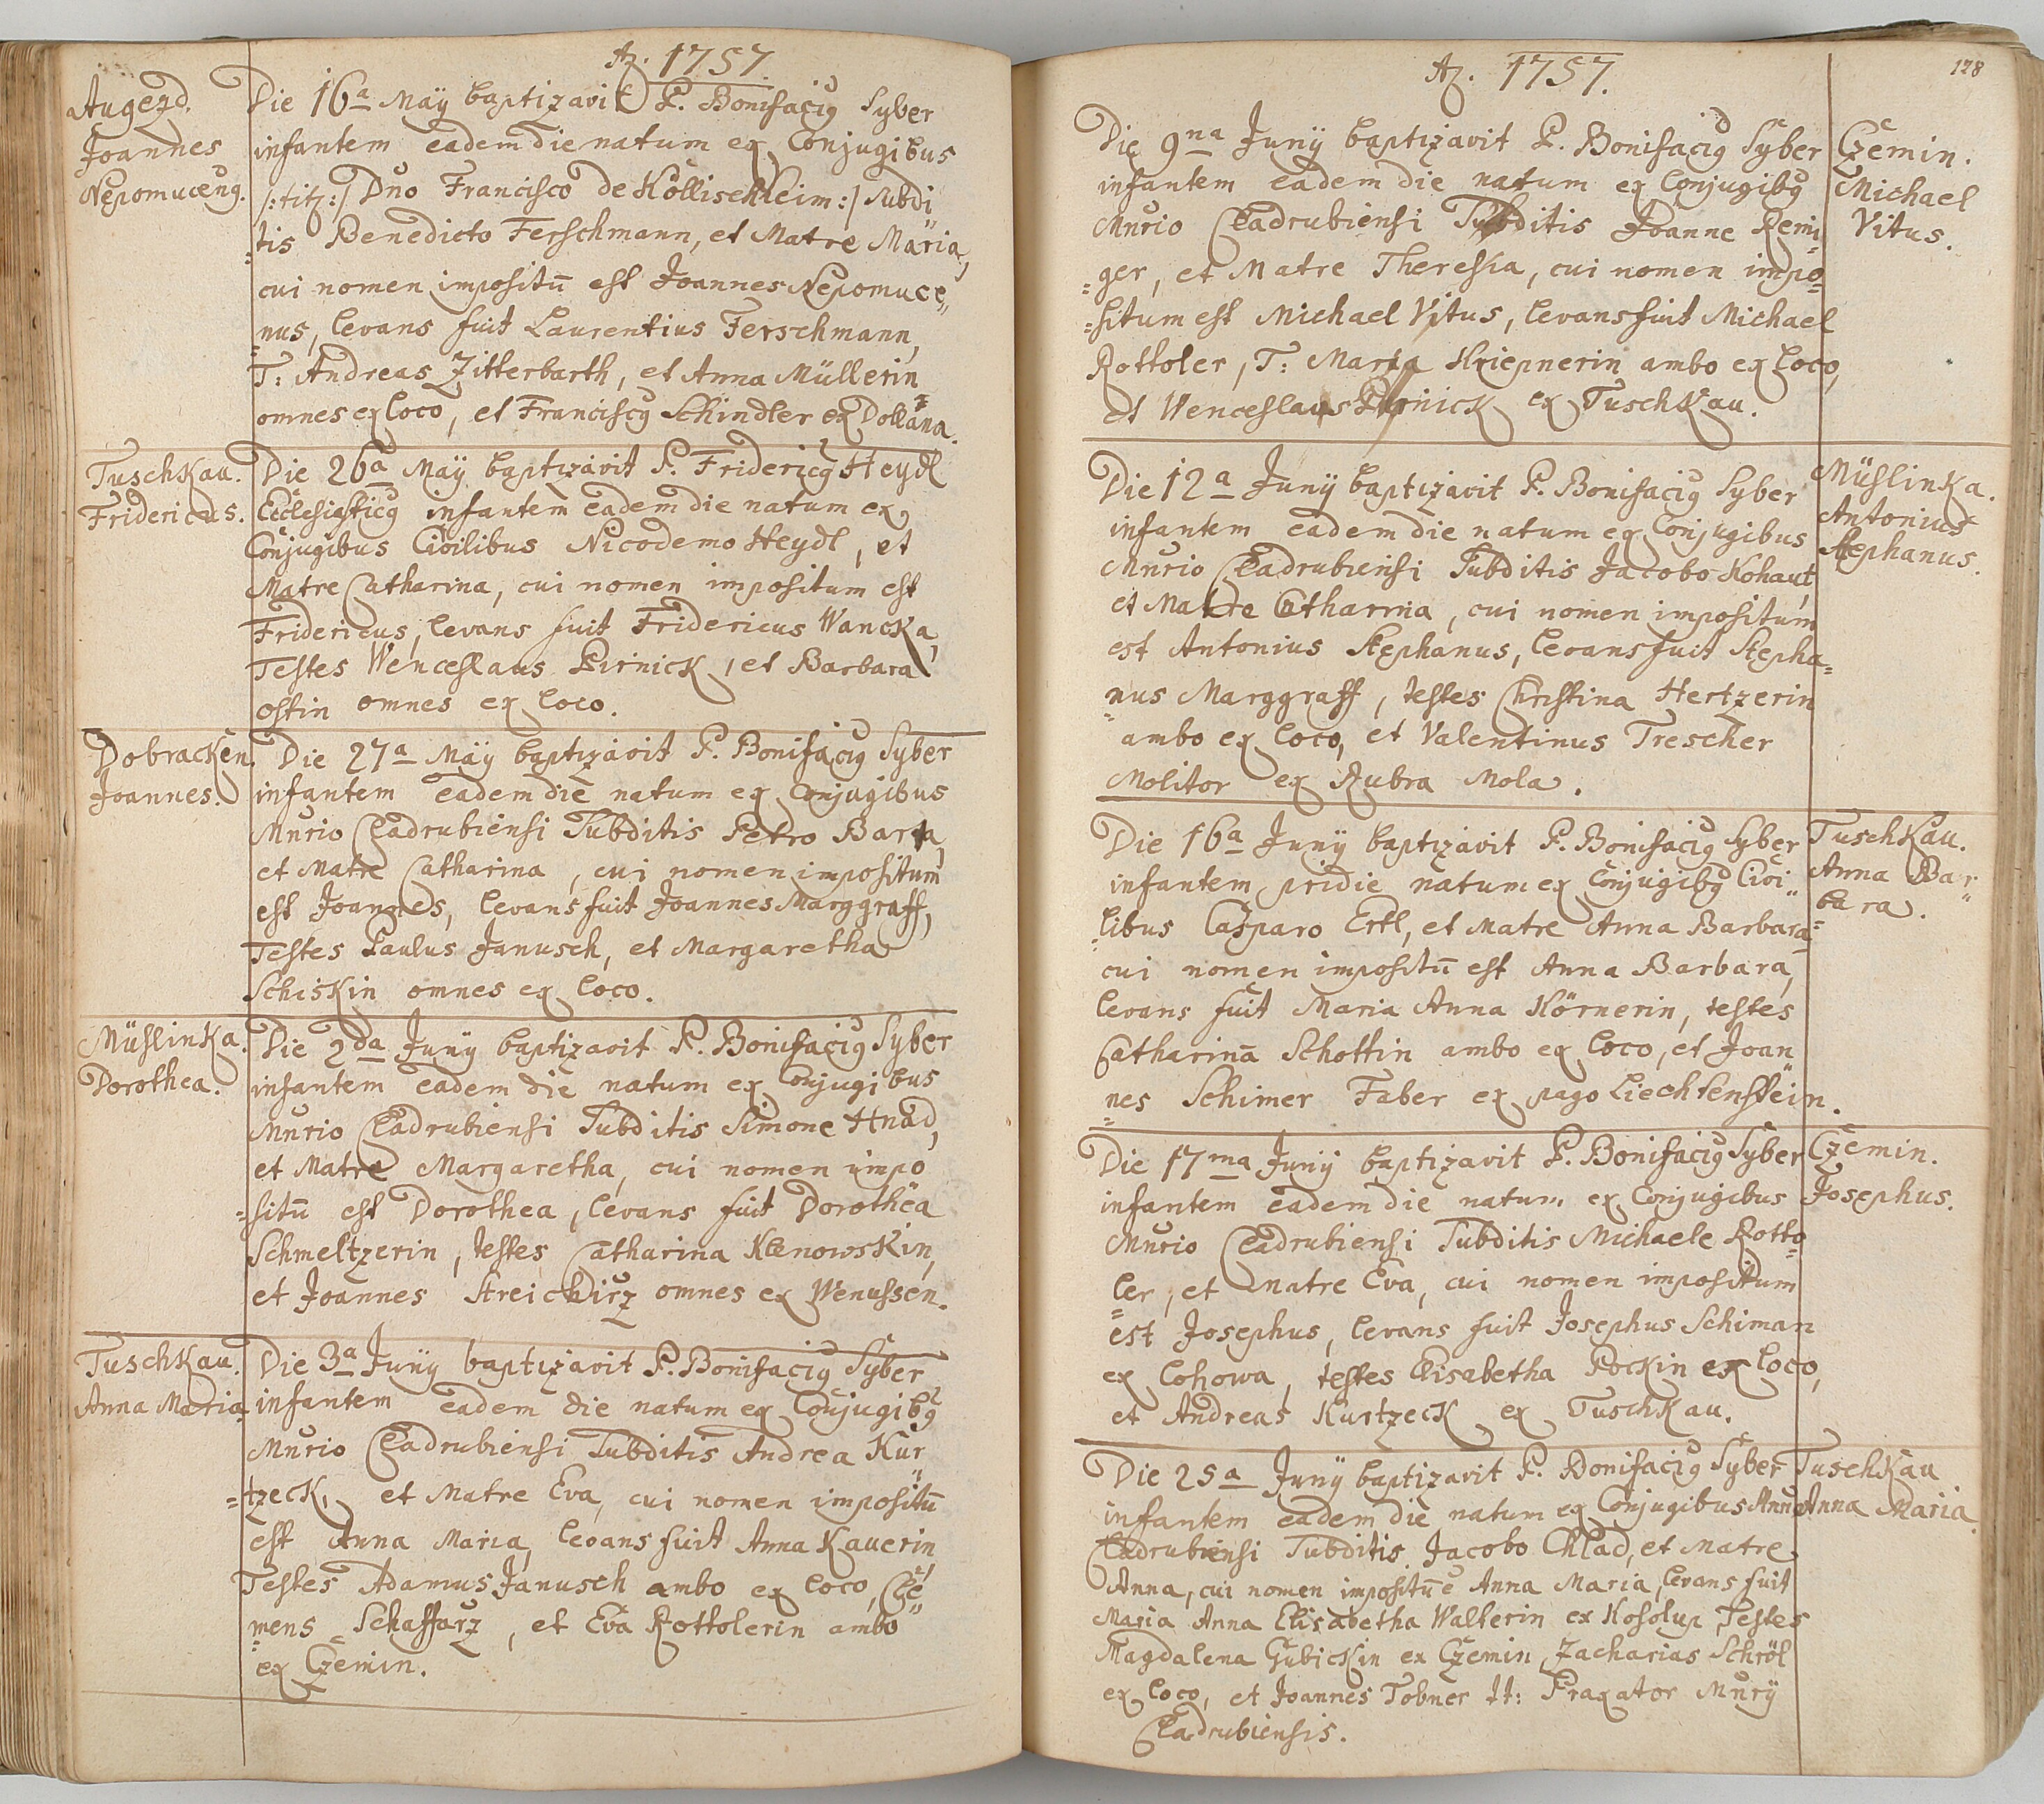 Aō. 1757.
Augezd.
Joannes
Nepomucenꝰ.
Die 16a Maÿ baptizavit P. Bonifaciꝰ Syber
infantem eadem die natum ex Conjugibus
/:titl:/ Dno Francisco de Köllischheim:/ subdi
tis Benedicto Ferschmann, et Matre Maria,
cui nomen impositū est Joannes Nepomuce„
nus, levans fuit Laurentius Ferschmann,
T: Andreas Zitterbarth, et Anna Müllerin
omnes ex loco, et Franciscꝰ Schindler ex Dollana.
Tuschkau.
Fridericus.
Die 26a Maÿ baptizavit P. Fridericꝰ Heydl
Ecclesiasticꝰ infantem eadem die natum ex
Conjugibus Civilibus Nicodemo Heydl, et
Matre Catharina, cui nomen impositum est
Fridericus, levans fuit Fridericus Wancka,
Testes Wenceslaus Pirnick, et Barbara
ostin omnes ex loco.
Dobracken.
Joannes.
Die 27a Maÿ baptizavit P. Bonifaciꝰ Syber
infantem eadem die natum ex Conjugibus
Mnrio Cladrubiensi Subditis Petro Barta,
et Matre Catharina, cui nomen impositum
est Joannes, levans fuit Joannes Marggraff,
Testes Paulus Janusch, et Margaretha
Schiskin omnes ex loco.
Müslinka.
Dorothea.
Die 2da Junÿ baptizavit P. Bonifaciꝰ Syber
infantem eadem die natum ex Conjugibus
Mnrio Cladrubiensi Subditis Simone Hnad,
et Matre Margaretha, cui nomen impo
=sitū est Dorothea, levans fuit Dorothea
Schmeltzerin, testes Catharina Klenowskin,
et Joannes Streichirz omnes ex Wenussen.
Tuschkau.
Anna Maria.
Die 3a Junÿ baptizavit P. Bonifaciꝰ Syber
infantem eadem die natum ex Conjugibꝰ
Mnrio Cladrubiensi Subditis Andrea Kur
=tzeck, et Matre Eva, cui nomen impositū
est Anna Maria, levans fuit Anna Kauerin,
Testes Adamus Janusch ambo ex loco, Cle„
mens Schaffarz, et Eva Rottolerin ambo
ex Czemin.
Aō. 1757.
128
Die 9na Junÿ baptizavit P. Bonifaciꝰ Syber
infantem eadem die natum ex Conjugibꝰ
Mnrio Cladrubiensi Subditis Joanne Remi
=ger, et Matre Theresia, cui nomen impo=
=situm est Michael Vitus, levans fuit Michael
Rottoler, T: Maria Kriepnerin ambo ex loco,
et Wenceslaus Pirnick ex Tuschkau.
Czemin.
Michael
Vitus.
Die 12a Junÿ baptizavit P. Bonifaciꝰ Syber
infantem eadem die natum ex Conjugibus
Mnrio Cladrubiensi Subditis Jacobo Kohaut,
et Matre Catharina, cui nomen impositum
est Antonius Stephanus, levans fuit Stepha=
nus Marggraff, testes Christina Hertzerin
ambo ex loco, et Valentinus Trescher
Molitor ex Rubra Mola.
Müslinka.
Antonius
Stephanus.
Die 16a Junÿ baptizavit P. Bonifaciꝰ Syber
infantem pridie natum ex Conjugibꝰ Civi„
libus Casparo Ertl, et Matre Anna Barbara
cui nomen impositū est Anna Barbara,
levans fuit Maria Anna Körnerin, testes
Catharina Schottin ambo ex loco, et Joan
nes Schimer Faber ex pago Liechtenstein.
Tuschkau.
Anna Bar„
bara.
Die 17ma Junÿ baptizavit P. Bonifaciꝰ Syber
infantem eadem die natum ex Conjugibus
Mnrio Cladrubiensi Subditis Michaele Rotto
ler, et Matre Eva, cui nomen impositum
est Josephus, levans fuit Josephus Schiman
ex Cohowa, testes Elisabetha Pockin ex loco,
et Andreas Kurtzeck ex Tuschkau.
Czemin.
Josephus.
Die 25a Junÿ baptizavit P. Bonifaciꝰ Syber
infantem eadem die natum ex Conjugibus Mnrio
Cladrubiensi Subditis Jacobo Chlad, et Matre
Anna, cui nomen impositū ē Anna Maria, levans fuit
Maria Anna Elisabetha Walterin ex Kosolup, Testes
Magdalena Gubickin ex Czemin, Zacharias Schröl
ex loco, et Joannes Tobner tt: Praxator Mnrÿ
Cladrubiensis.
Tuschkau
Anna Maria.